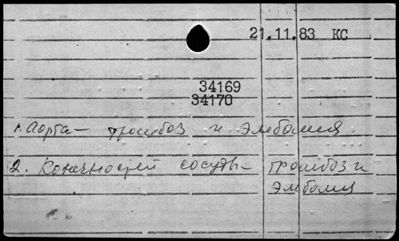 21.11.83 КС
34169
34170
1. Аорта – тромбоз и эмболия
2. Конечностей сосуды – тромбоз и
эмболия